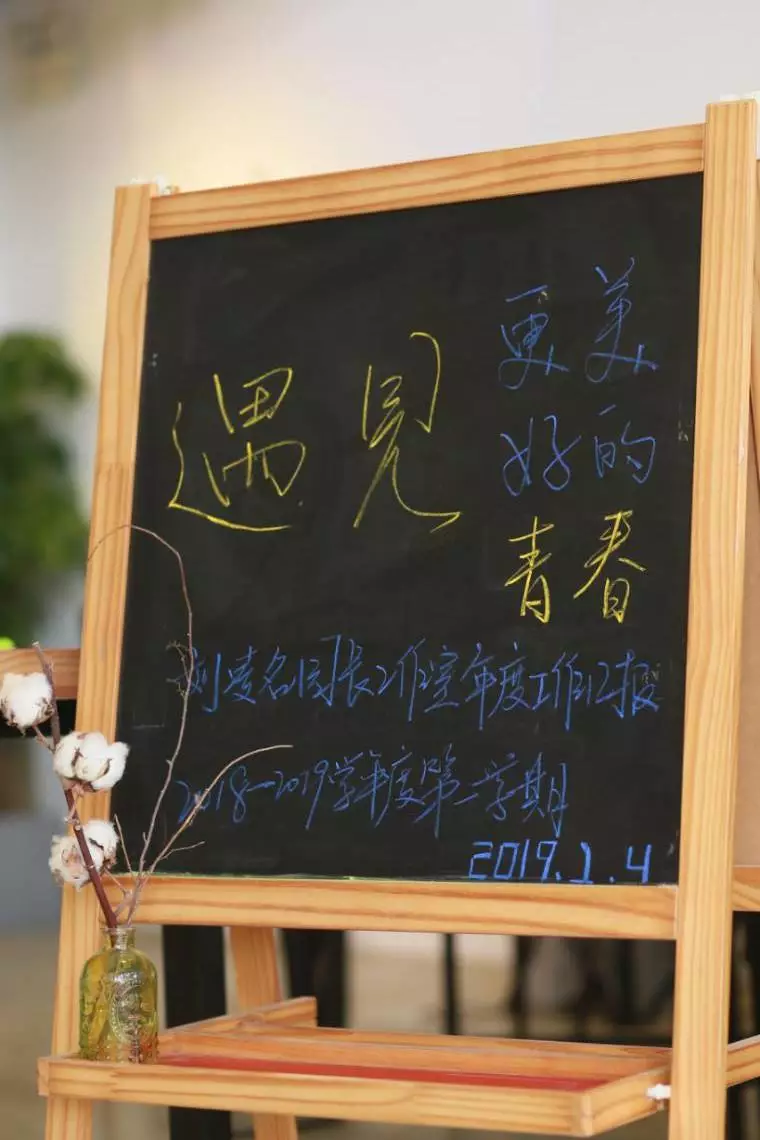 遇见
更美
好的
青春
刘麦名园长工作室年度工作汇报
2018-2019学年度第一学期
2019.1.4